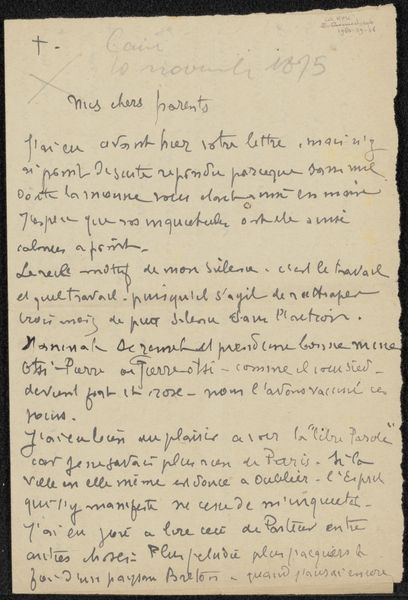 Caire
10 novembre 1895
Mes chers parents
J'ai eu avant hier votre lettre, mais n'y
ai point de suite repondu parceque sans nul
doute la mienne vous etant en main
J'espere que vos inquietudes ont ete ainsi
calmees a point.
Le seul motif de mon silence. c'est le travail
et quel travail. puisqu'il s'agit de rattraper
trois mois de pur silence dans l'action.
et prend une bonne mine
Pierre ou Pierre - comme il vous sied -
devient fort et rose - nous l'avons vaccine ces
jours.
J'ai eu bien du plaisir a voir la "libre Parole"
car je ne savais plus rien de Paris. Si la
ville en elle même est douce a oublier - l'Esprit
qui s'y manifeste ne cesse de m'inquieter.
J'ai eu joie a lire ceci de Pasteur entre
autres choses. Plus j'etudie plus j'acquiers la
foi d'un paysan Breton - quand j'aurai encore